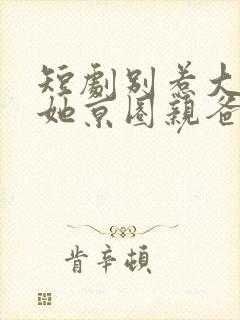 短劇别惹大
她京圈親爸
肯辛頓